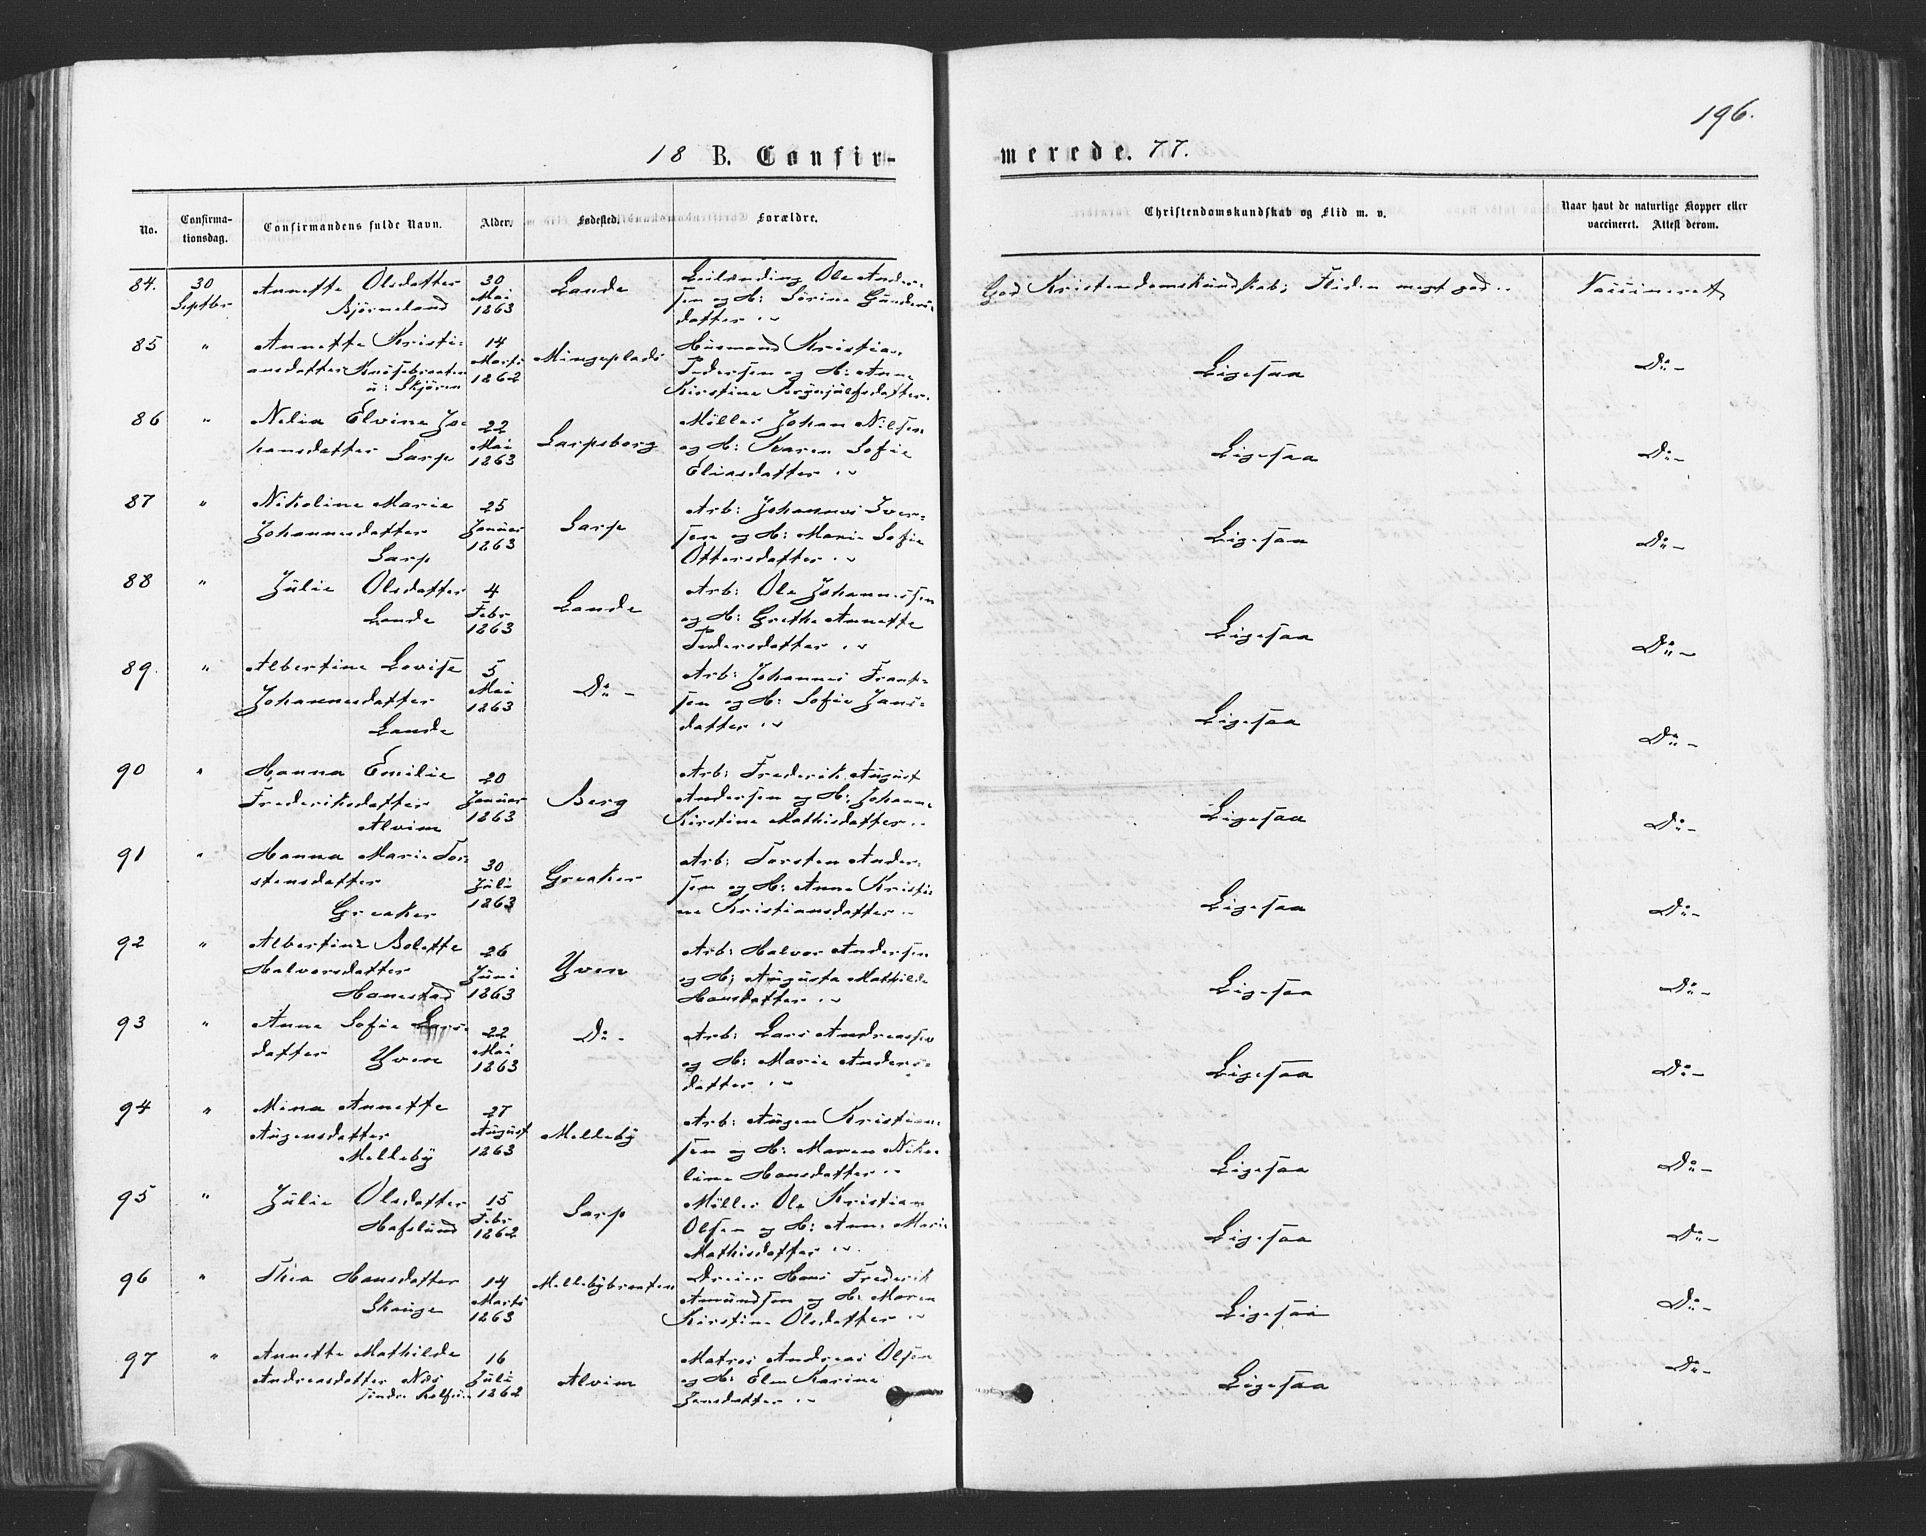 196.
18 B. Confir-
merede. 77.
No.
Confirma-
tionsdag.
Confirmandens fulde Navn.
Alder.
Fødested.
Forældre.
Christendomskundskab og Flid m. v.
Naar havt de naturlige Kopper eller
vaccineret. Attest derom.
84.
30
Septbr
Annette Olsdatter
Bjørneland
30
Mai
1863
Lande
Leilænding Ole Ander-
sen og H: Sørine Gunders-
datter
God Kristendomskundskab; Fliden meget god
Vaccineret
85
"
Annette Kristi-
ansdatter Knøsebraaten
u: Skjøren
14
Marts
1862
Mingeplads
Husmand Kristian
Pedersen og H: Anne
Kirstine Brynjulfsdatter
Ligesaa
Do -
86
"
Nelia Elvine Jo-
hansdatter Sarp
22
Mai
1863
Sarpsborg
Møller Johan Nilsen
og H: Karen Sofie
Eliasdatter
Ligesaa
Do -
87
"
Nikoline Marie
Johannesdatter
Sarp
25
Januar
1863
Sarp
Arb: Johannes Iver-
sen og H: Marie Sofie
Ottersdatter
Ligesaa
Do -
88
"
Julie Olsdatter
Lande
4
Febr
1863
Lande
Arb: Ole Johannessen
og H: Grethe Annette
Pedersdatter
Ligesaa
Do -
89.
"
Albertine Lovise
Johannesdatter
Lande
5
Mai
1863
Do -
Arb: Johannes Frant-
sen og H: Sofie Jans-
datter
Ligesaa
Do -
90
"
Hanna Emilie
Frederiksdatter
Alvim
20
Januar
1863
Berg
Arb: Frederik August
Andersen og H: Johanne
Kirstine Mathisdatter
Ligesaa
Do -
91
"
Hanna Marie Tor-
stensdatter
Greaker
30
Juli
1863
Greaker
Arb: Torsten Ander-
sen og H: Anne Kristi-
ne Kristiansdatter
Ligesaa
Do -
92
"
Albertine Bolette
Halvorsdatter
Hanestad
26
Juni
1863
Yven
Arb: Halvor Andersen
og H: Augusta Mathilde
Hansdatter
Ligesaa
Do -
93
"
Anne Sofie Lars-
datter Yven
22
Mai
1863
Do -
Arb: Lars Andreassen
og H: Marie Anders-
datter
Ligesaa
Do -
94
"
Mina Annette
Augensdatter
Melleby
27
August
1863
Melleby
Arb: Augen Kristian-
sen og H: Maren Niko-
line Hansdatter
Ligesaa
Do -
95
"
Julie Olsdatter
Hafslund
15
Febr
1862
Sarp
Møller Ole Kristian
Olsen og H: Anne Marie
Mathisdatter
Ligesaa
Do -
96
"
Thea Hansdatter
Skauge
14
Marts
1863
Mellebybraaten
Dreier Hans Frederik
Amundsen og H: Maren
Kirstine Olsdatter
Ligesaa
Do -
97
"
Annette Mathilde
Andreasdatter Næs
søndre Kalfen
16
Juli
1862
Alvim
Matros Andreas Olsen
og H: Elen Karine
Jensdatter
Ligesaa
Do -